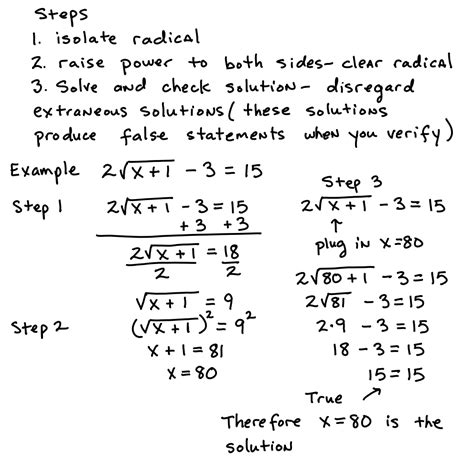 Steps
1. isolate radical
2. raise power to both sides - clear radical
3. Solve and check solution - disregard
extraneous solutions (these solutions
produce false statements when you verify)
Example 2√(x+1) - 3 = 15
Step 1 2√(x+1) - 3 = 15
+3 +3
2√(x+1)/2 = 18/2
√(x+1) = 9
Step 2 (√(x+1))² = 9²
x + 1 = 81
x = 80
Step 3
2√(x+1) - 3 = 15
↑
plug in x=80
2√(80+1) - 3 = 15
2√81 - 3 = 15
2·9 - 3 = 15
18 - 3 = 15
15 = 15
True ↗
Therefore x=80 is the
solution